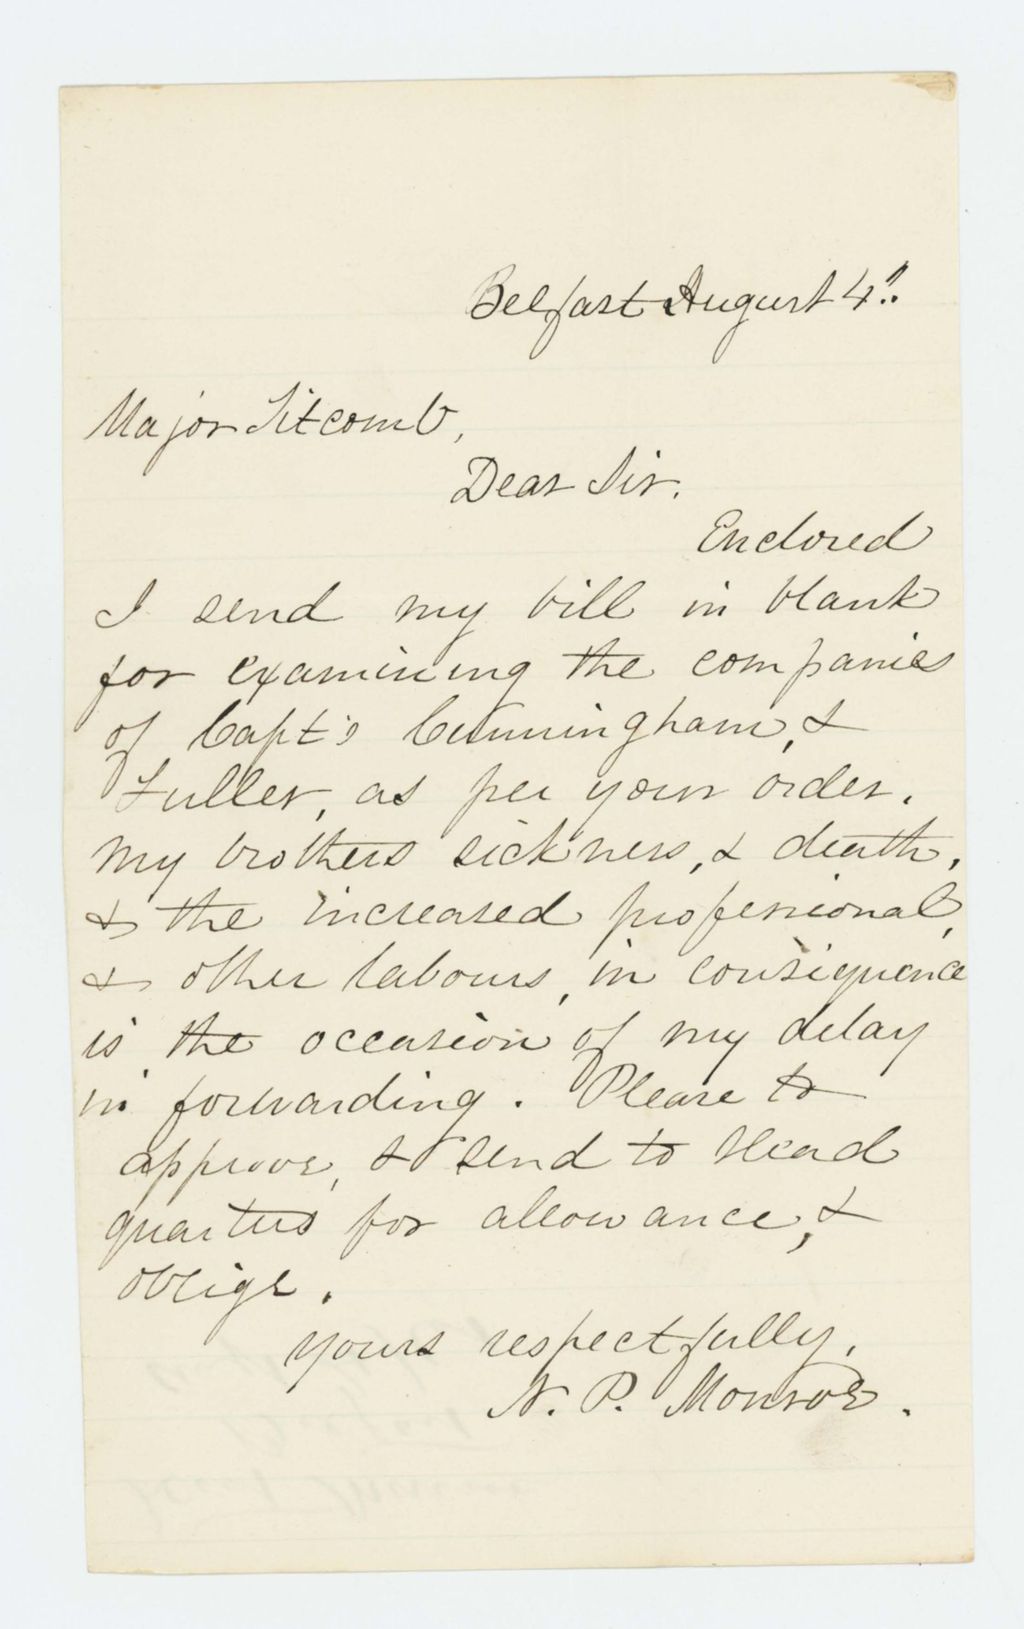 Belfast August 4th.
Major Titcomb,
Dear Sir.
Enclosed
I send my bill in blank
for examining the companies
of Capt's Cunningham, &
Fuller, as per your order.
My brothers sickness, & death,
& the increased professional,
& other labours, in consequence
is the occasion of my delay
in forwarding. Please to
approve, & send to Head
quarters for allowance, &
oblige.
Yours respectfully,
N. P. Monroe.